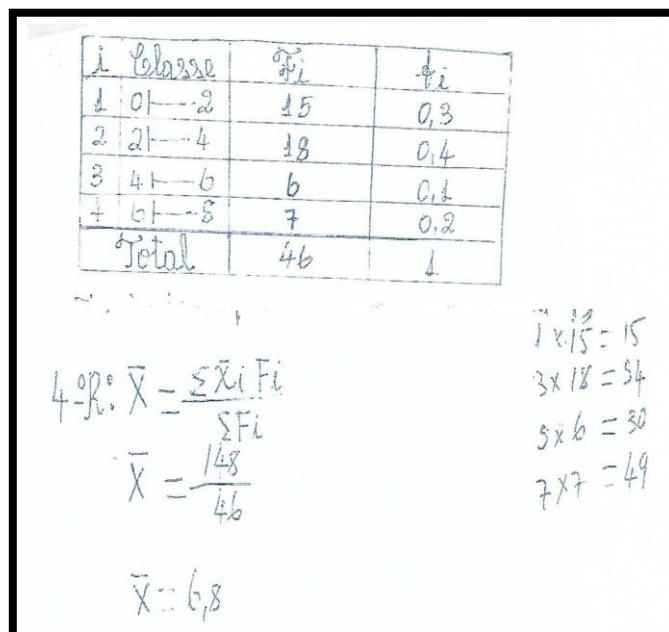 i Classe Fi fi
1 0|----2 15 0,3
2 2|----4 18 0,4
3 4|---6 6 0,1
4 6|---8 7 0,2
Total 46 1
4ªR: X̄ = ΣX̄i Fi
ΣFi
X̄ = 148
46
X̄ = 6,8
1x15 = 15
3x18 = 54
5x6 = 30
7x7 = 49